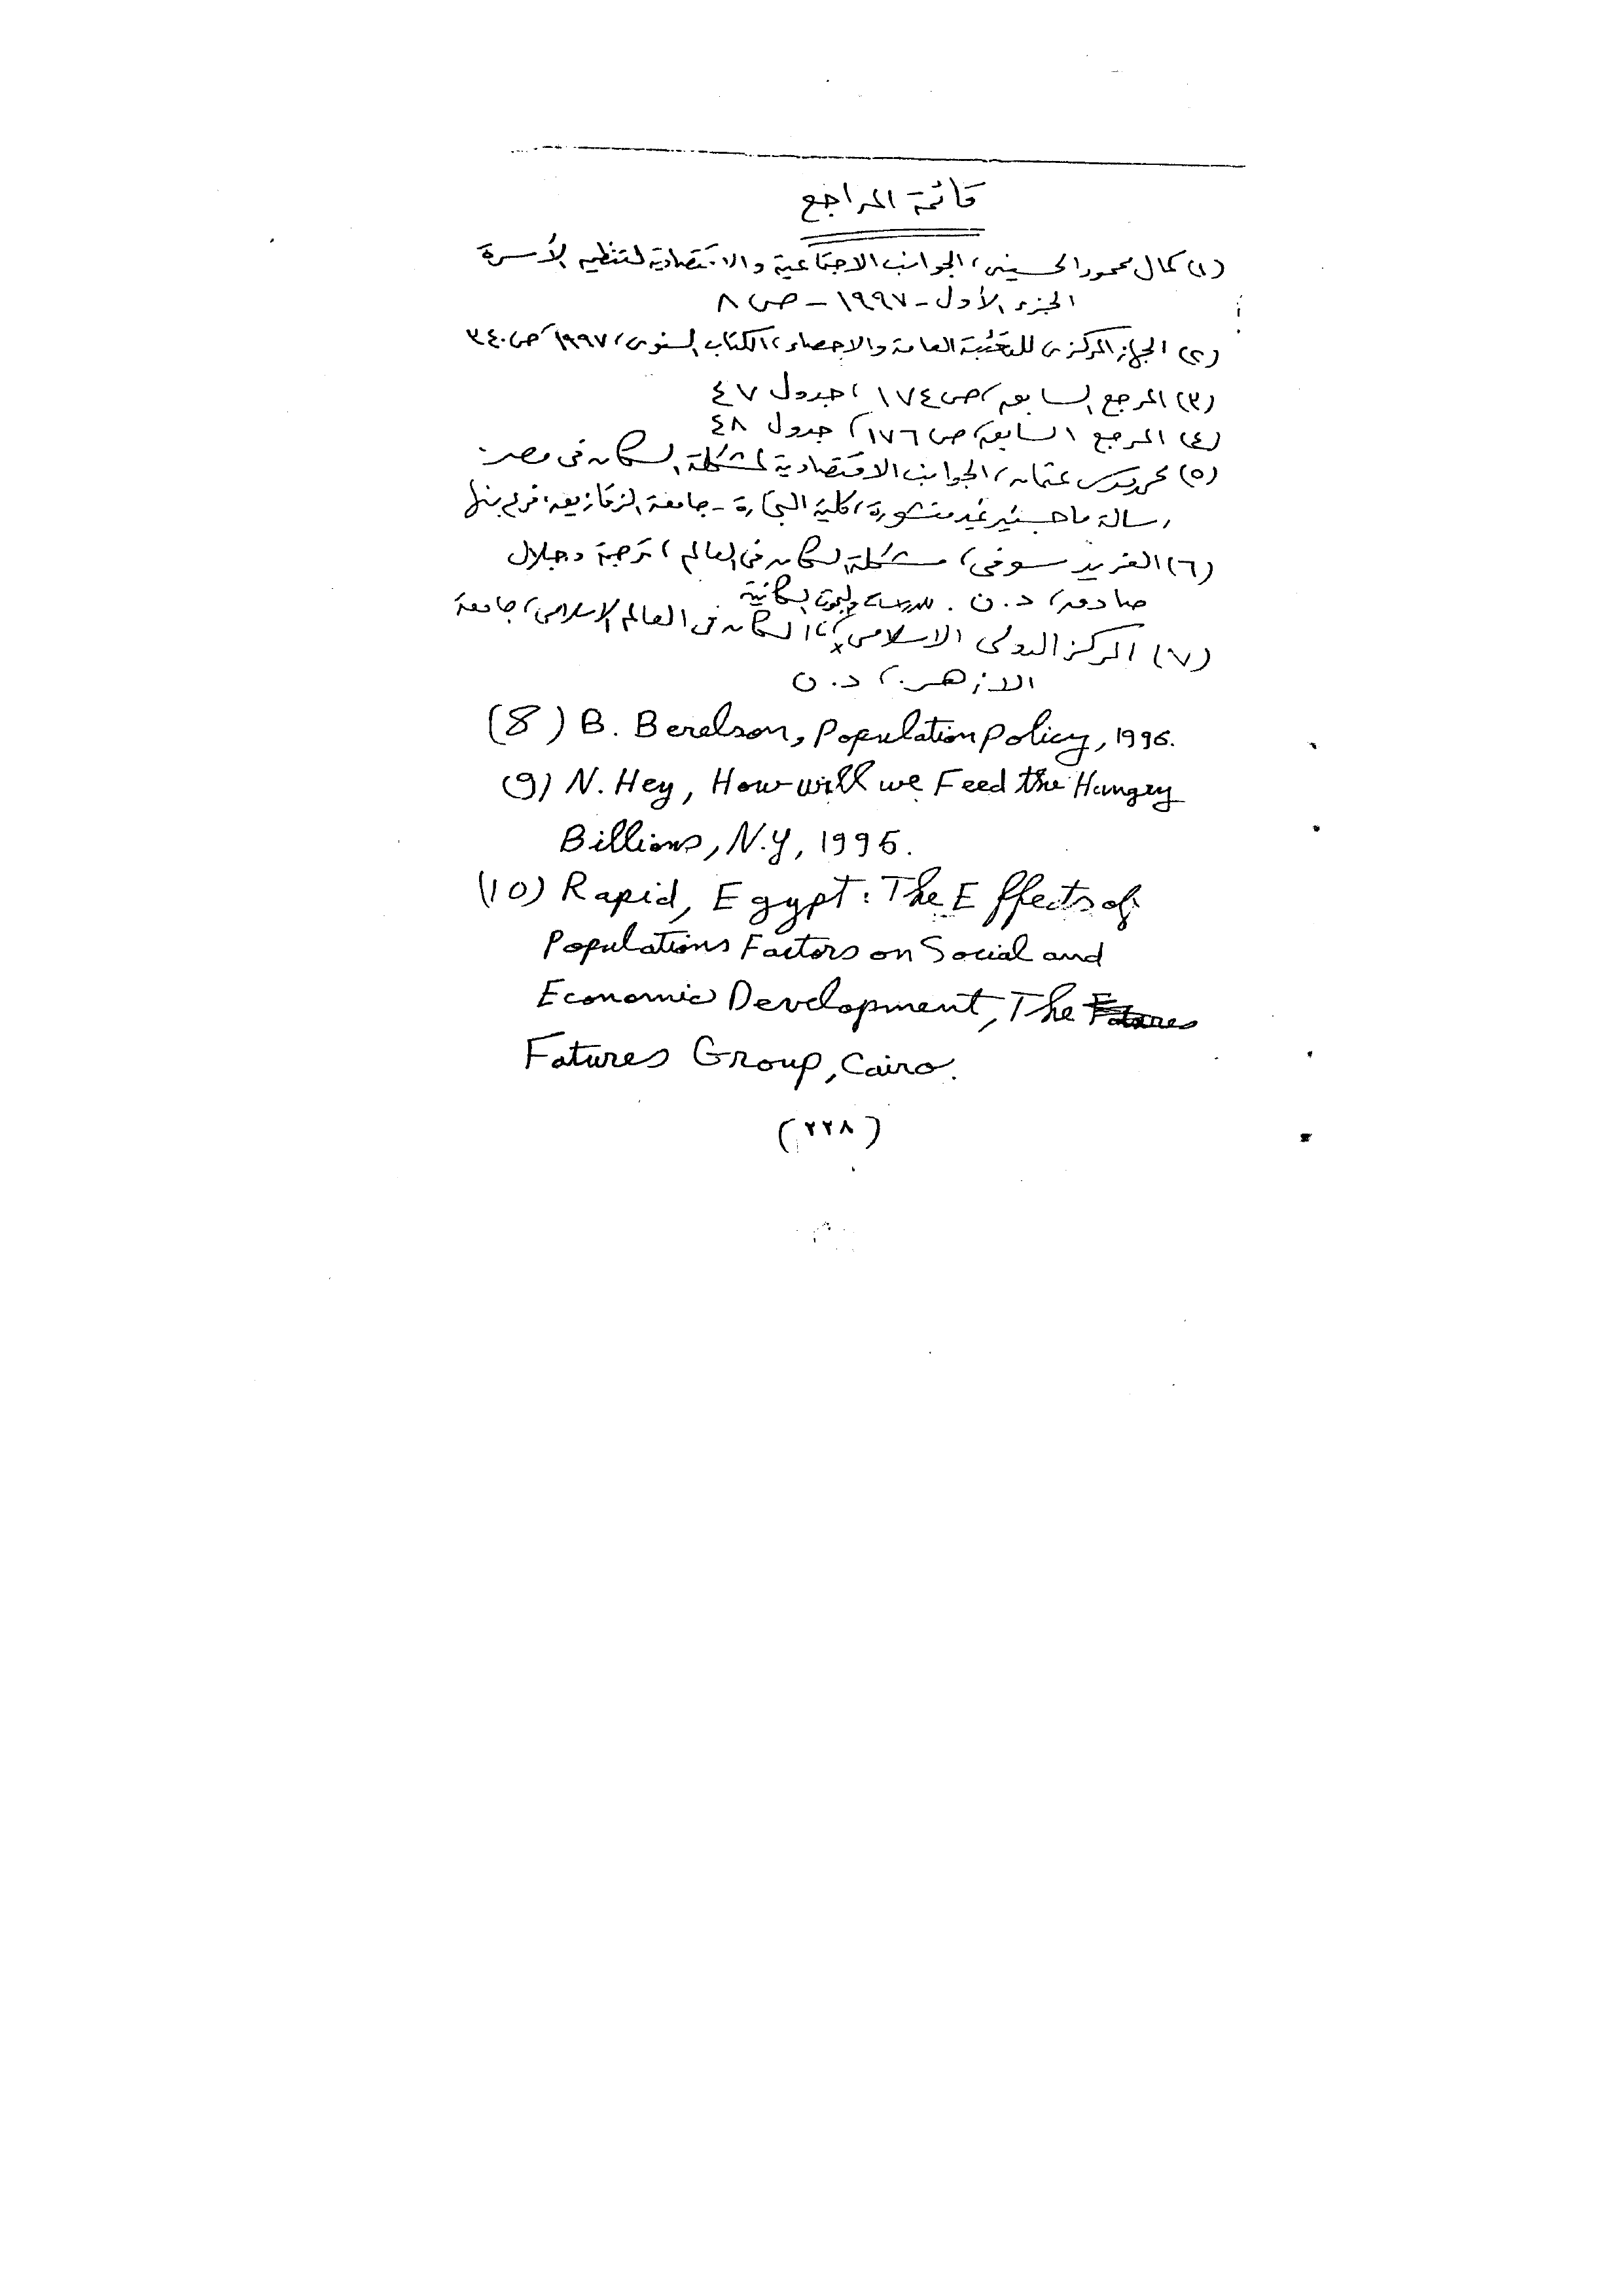 قائمة المراجع
(١) كمال محمود الحسينى، الجوانب الاجتماعية والاقتصادية لتنظيم الأسرة
الجزء الأول - ١٩٩٧ - ص ٨
(٢) الجهاز المركزى للتعبئة العامة والاحصاء، الكتاب السنوى، ١٩٩٧، ص ٣٤٠
(٣) المرجع السابق، ص ١٧٤، جدول ٤٧
(٤) المرجع السابق، ص ١٧٦، جدول ٤٨
(٥) عثمان، الجوانب الاقتصادية لمشكلة السكان فى مصر
رسالة ماجستير غير منشورة، كلية التجارة - جامعة الزقازيق، فرع بنها
(٦) الفريد سوفى، مشكلة السكان فى العالم، ترجمة د. جلال
صادق، د.ن.
للدراسات والبحوث السكانية
(٧) المركز الدولى الاسلامى، السكان فى العالم الاسلامى، جامعة
الازهر، د.ن
(8) B. Berelson, Population policy, 1996.
(9) N. Hey, How will we Feed the Hungry
Billions, N.Y, 1996.
(10) Rapid, Egypt: The Effects of
Populations Factors on Social and
Economic Development, The
Fatures Group, Cairo.
(٢٢٨)